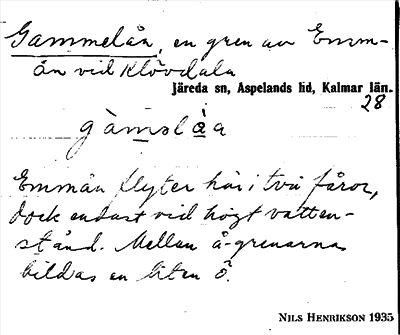 Gammelån, en gren av Emm-
ån vid Klövdala
Järeda sn, Aspelands hd, Kalmar län.
28
gàməlå̀a
Emmån flyter här i två fåror,
dock endast vid högt vatten-
stånd. Mellan å-grenarna
bildas en liten ö.
NILS HENRIKSON 1935